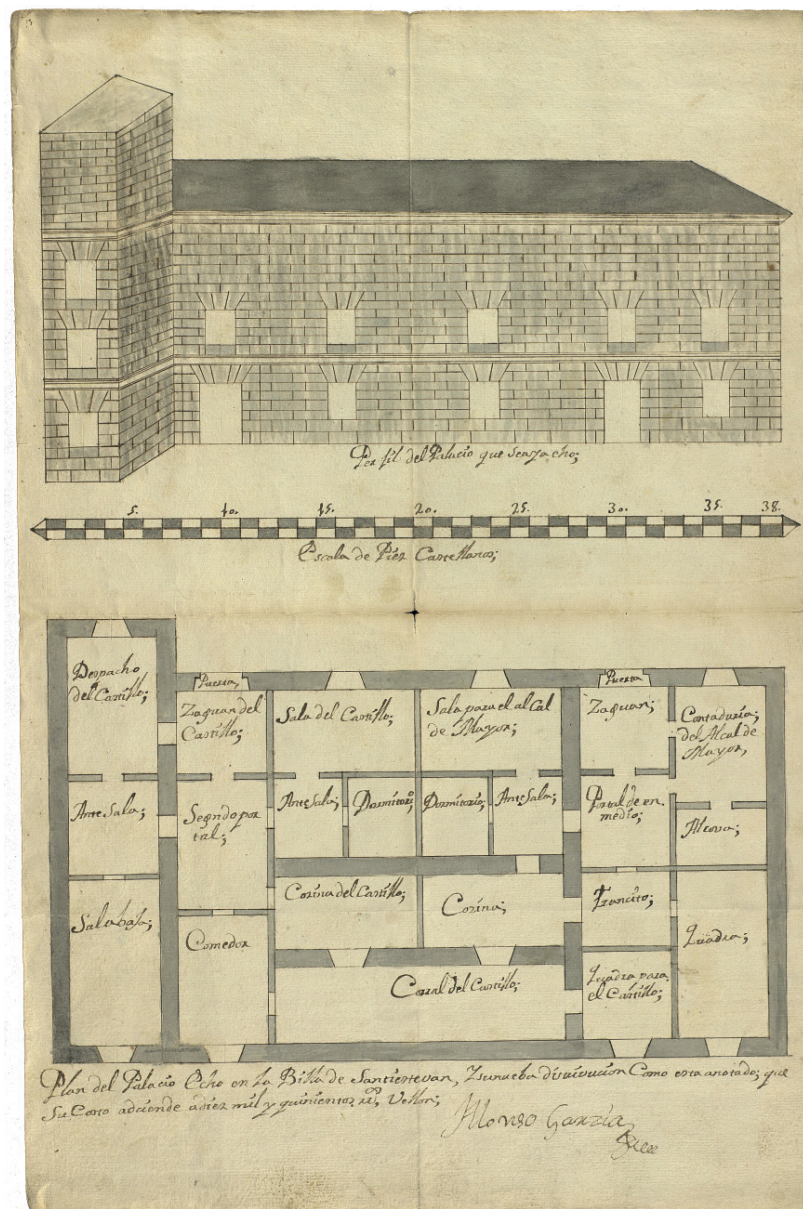 Perfil del Palacio que se aza cho;
5. 10. 15. 20. 25. 30. 35. 38.
Escala de Piez Castellanos;
Despacho
del Castillo;
Puerta,
Zaguan del
Castillo;
Sala del Castillo;
Sala para el alcal
de Mayor;
Puerta
Zaguan;
Contaduria;
del Alcal de
Mayor,
Ante Sala;
Segndo por
tal;
Ante Sala;
Dormitoro;
Dormitorio;
Ante Sala;
Portal de en
medio;
Alcova;
Sala baja;
Comedor
Cozina del Castillo;
Cozina;
Trancito;
Quadra;
Corral del Castillo;
Quadra para
el Castillo;
Plan del Palacio Echo en la Billa de Santiestevan, Zsunueba divivucion Como esta anotado; que
Su Costo adcionde a diez mil y quinientos Vellon;
Alonso Garzia